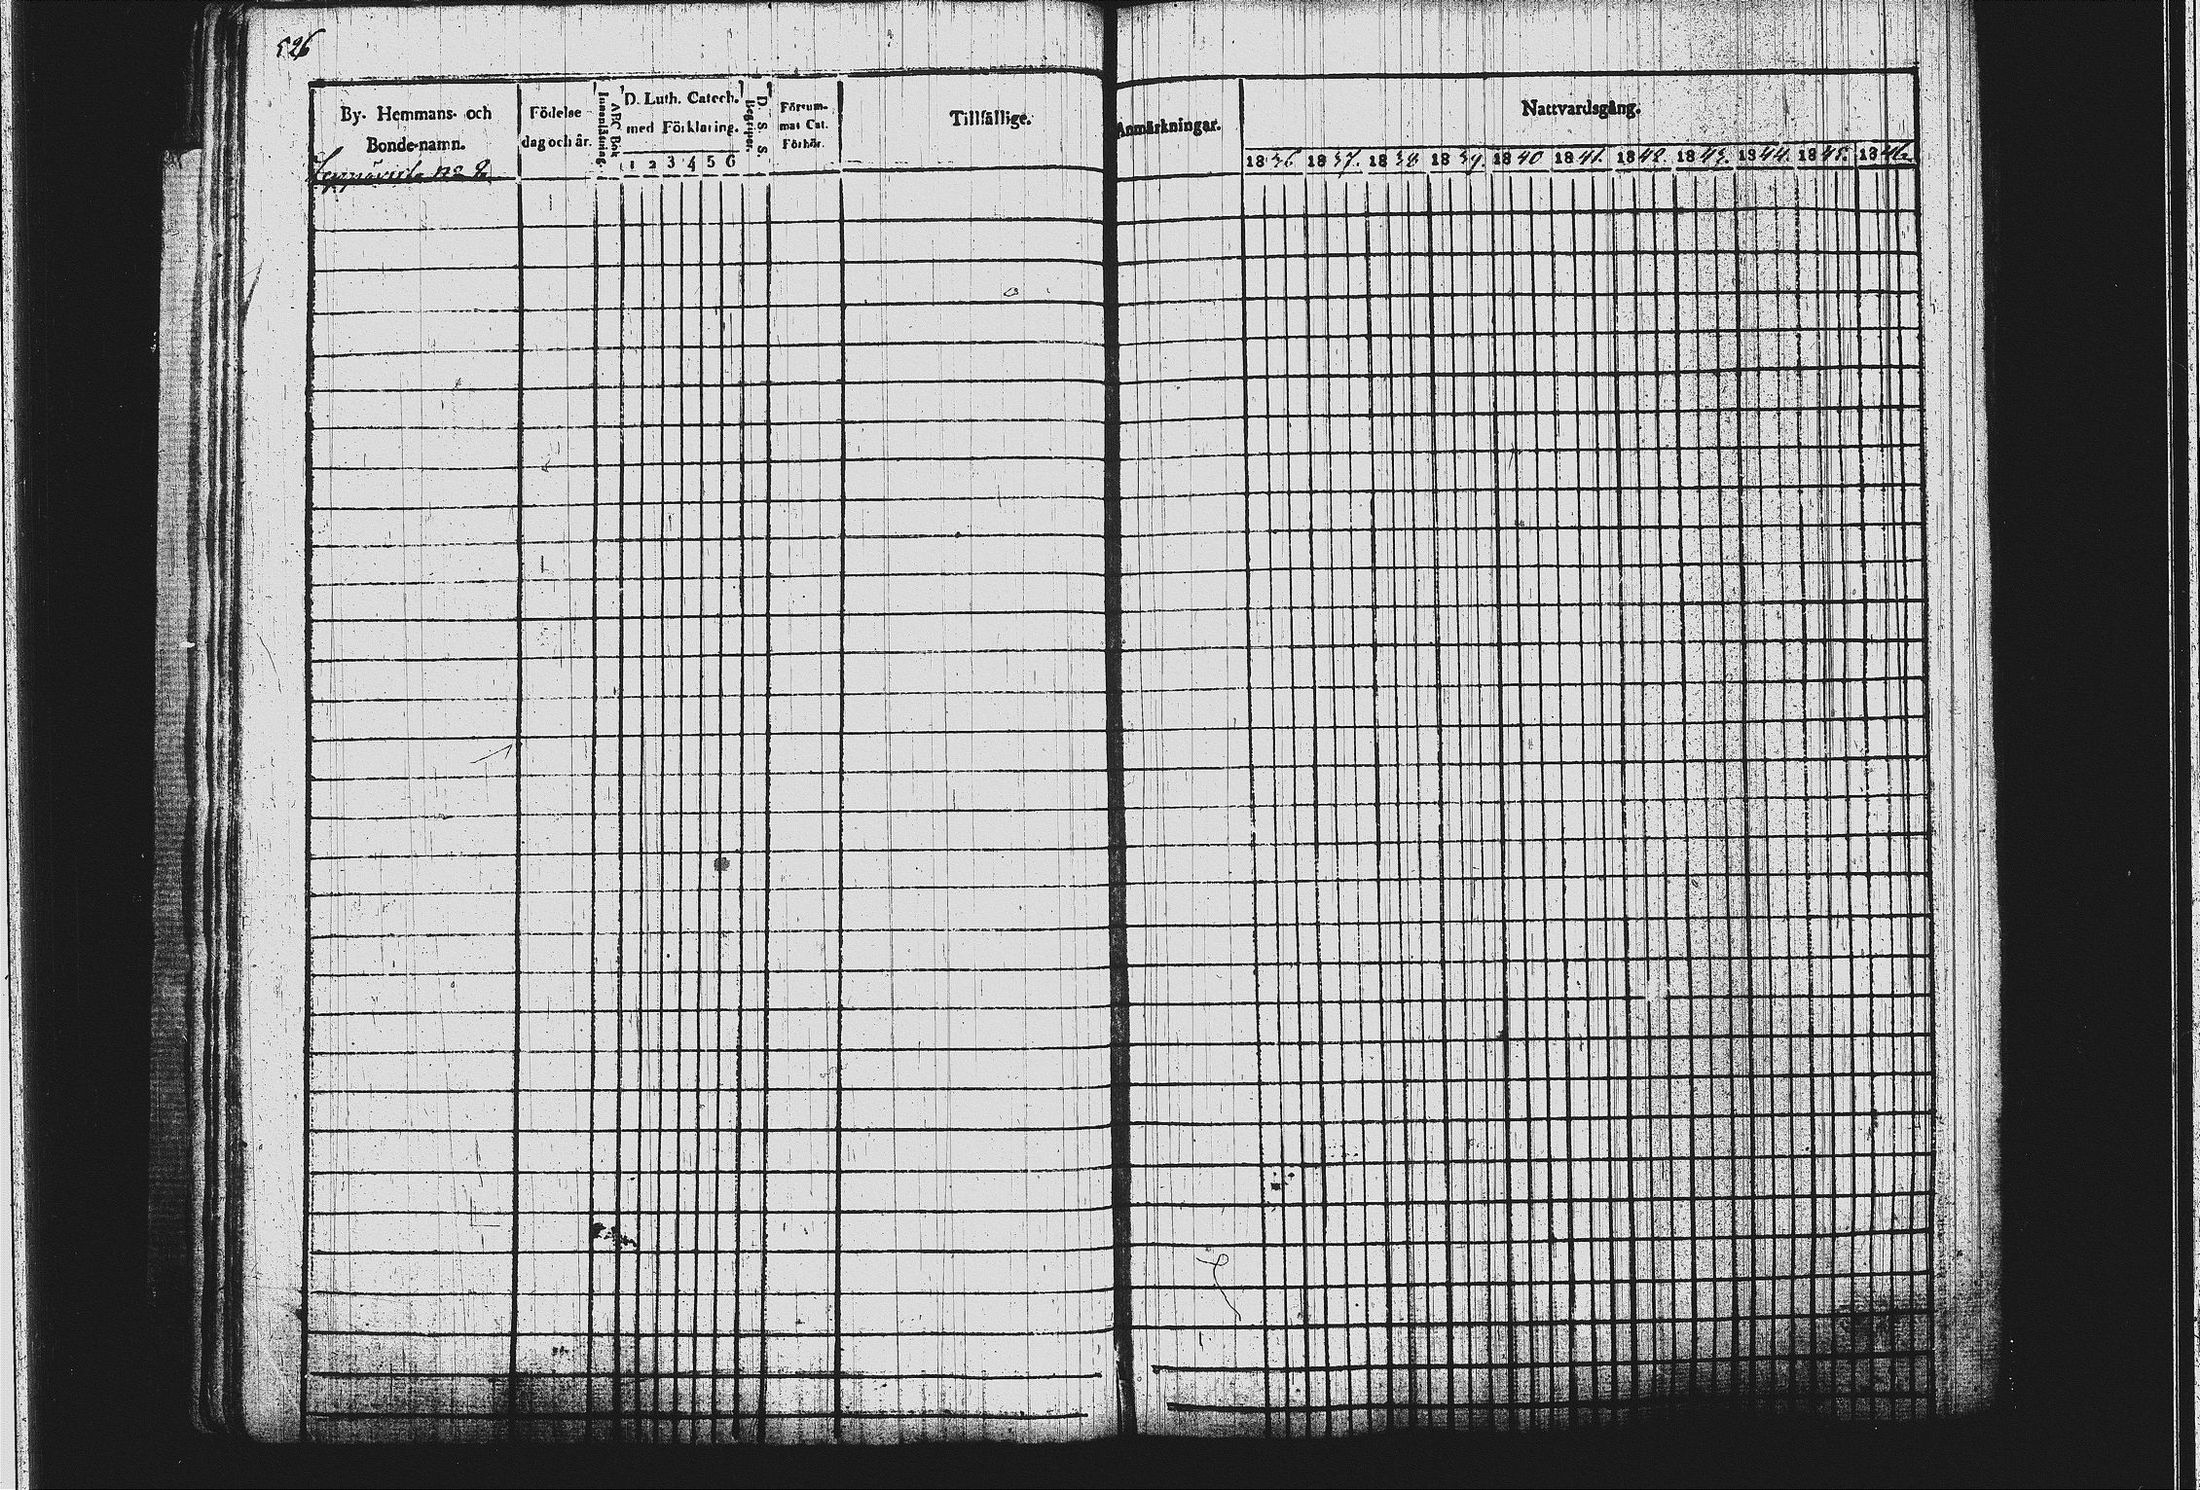 526
By. Hemmans- och
Bonde-namn.
Födelse
dag och år.
Innanläsning.
ABC Bok
D. Luth. Catech.
med Förklaring.
1 2 3 4 5 6
D. S. S.
Begriper.
Försum-
mat Cat.
Förhör.
Tillfällige.
Anmärkningar.
Nattvardsgång.
1836. 1837. 1838. 1839. 1840 1841. 1842. 1843. 1844. 1845. 1846.